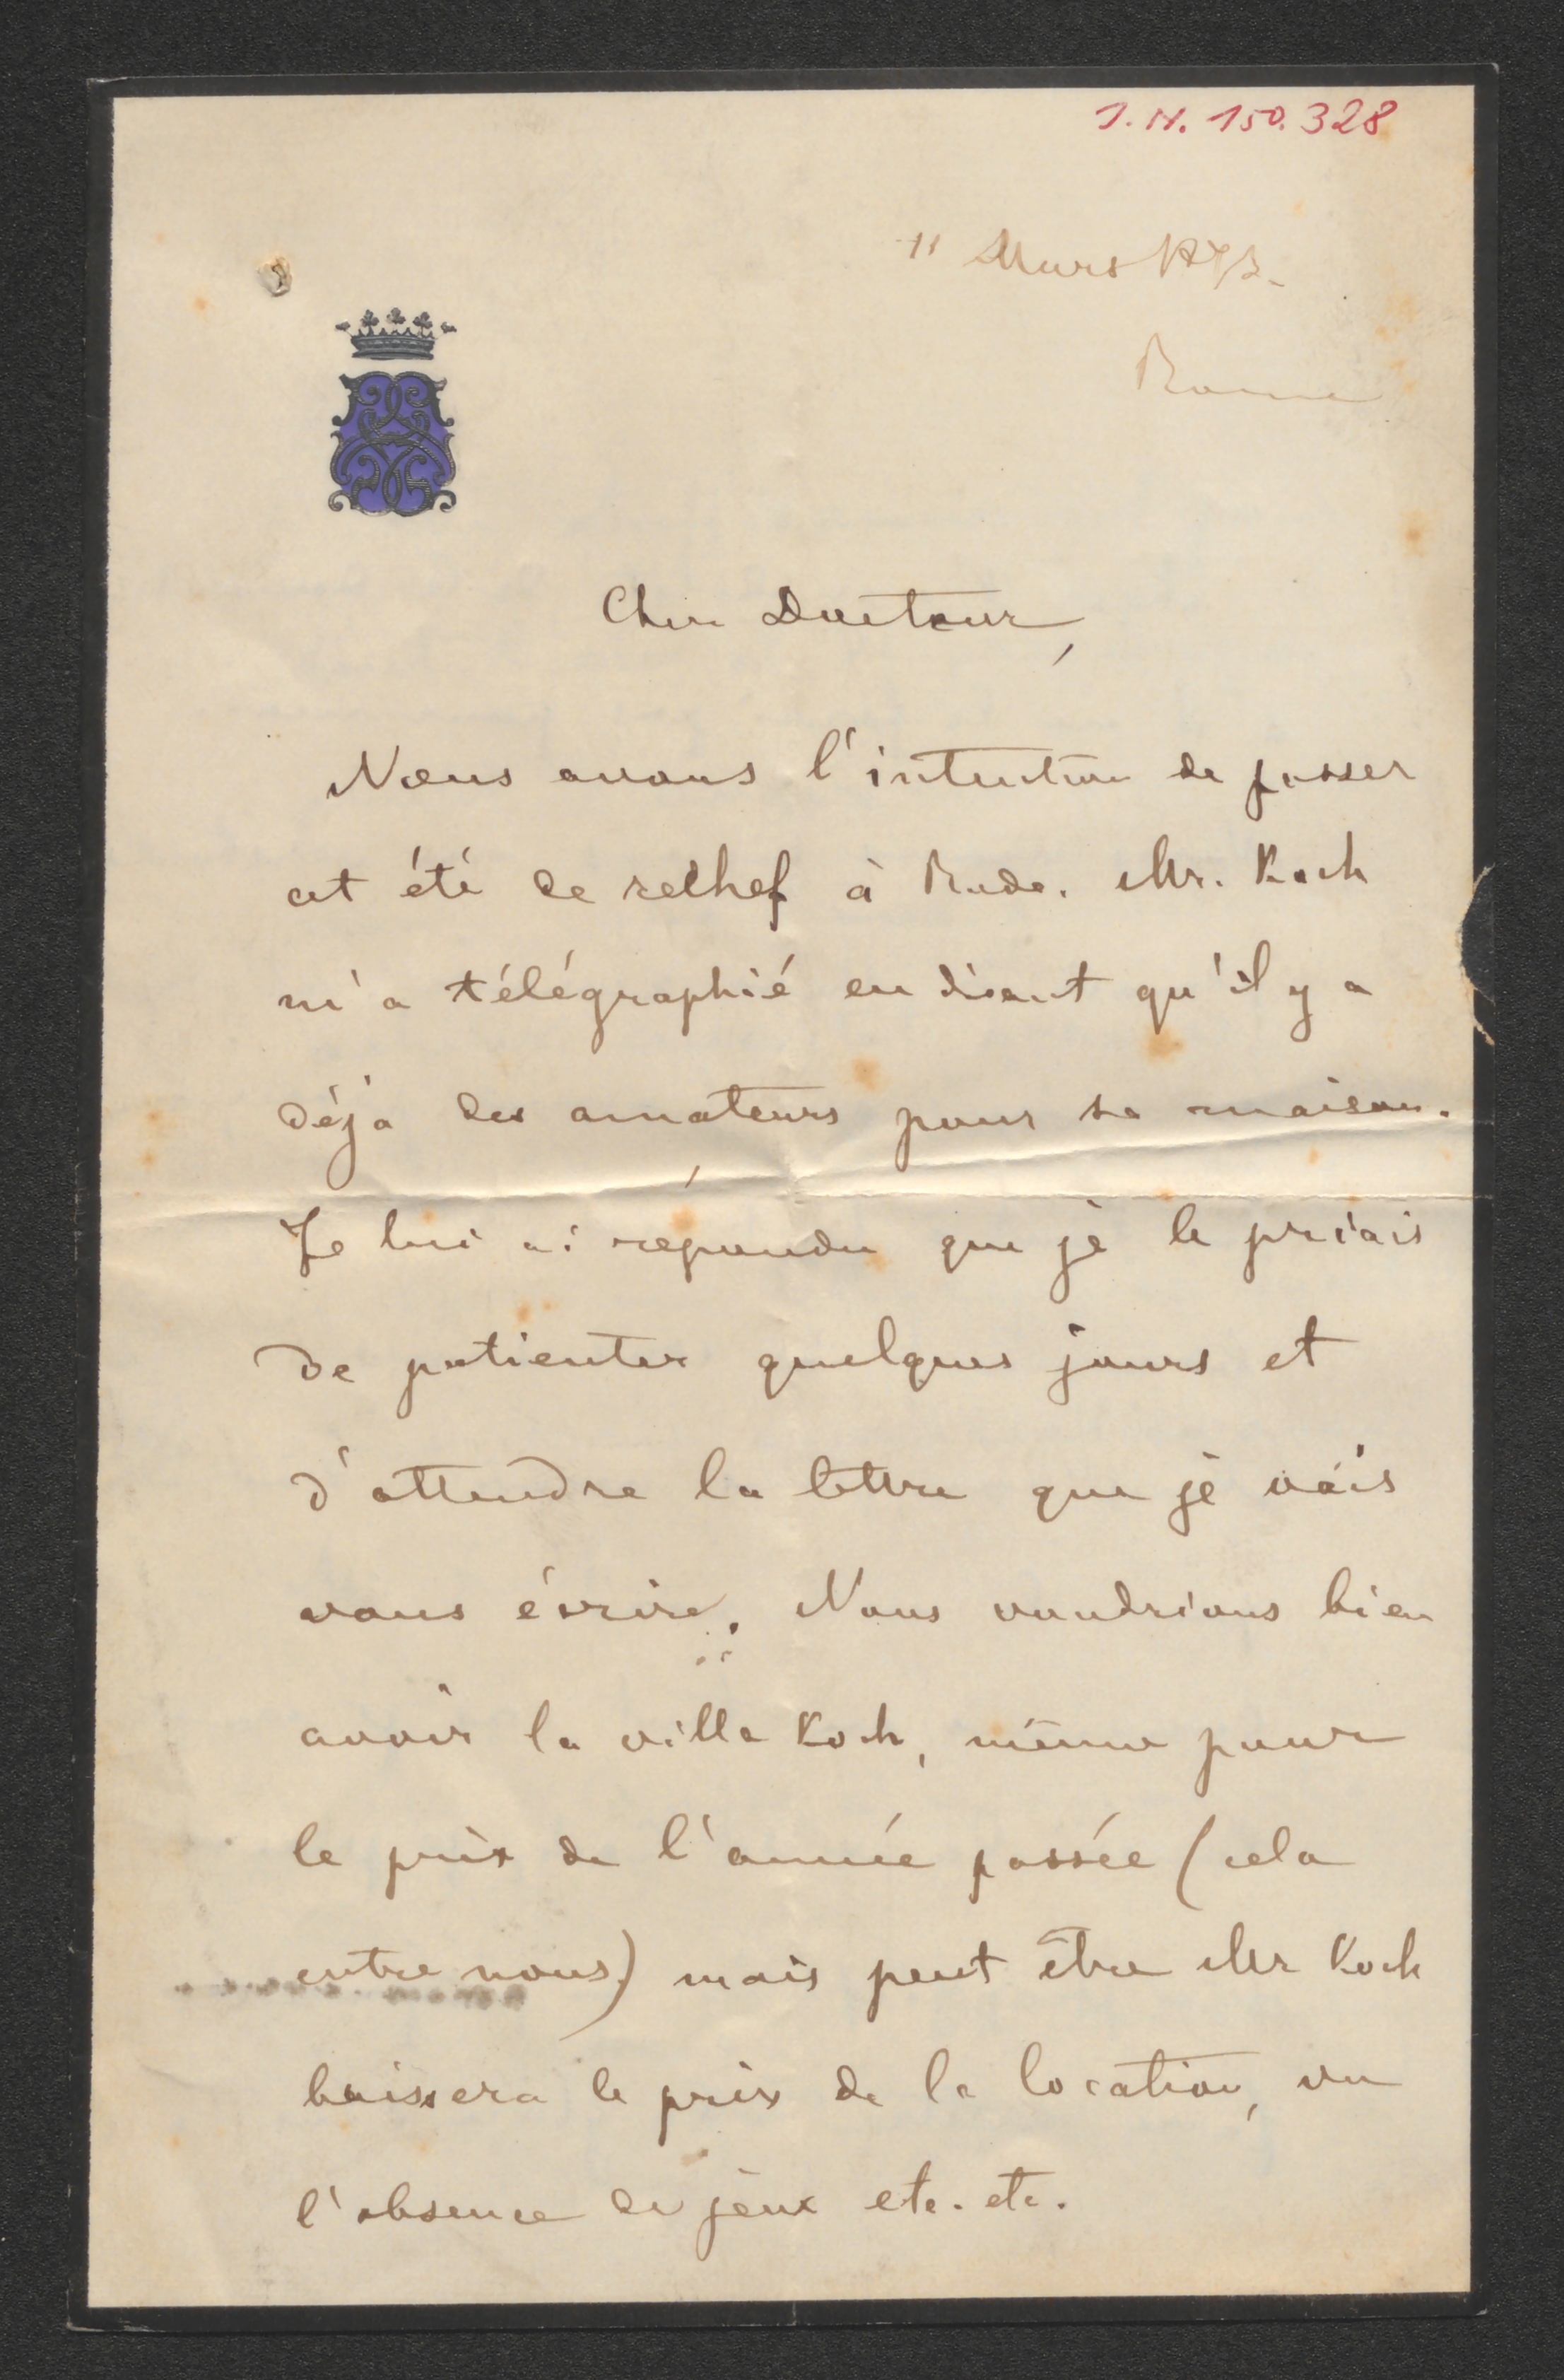 I.N. 150.328
11 Mars 1873.
Rome
Cher Docteur,
Nous avons l'intention de passer
cet été de rechef à Bade. Mr. Koch
m'a télégraphié en disant qu'il y a
déjà des amateurs pour sa maison.
Je lui ai répondu que je le priais
de patienter quelques jours et
d'attendre la lettre que je vais
vous écrire. Nous voudrions bien
avoir la villa Koch, même pour
le prix de l'année passée (cela
entre nous) mais peut être Mr Koch
baissera le prix de la location, vu
l'absence de jeux etc. etc.